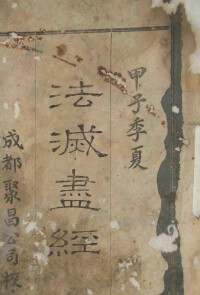 甲子季夏
法滅盡經
成都聚昌公司校